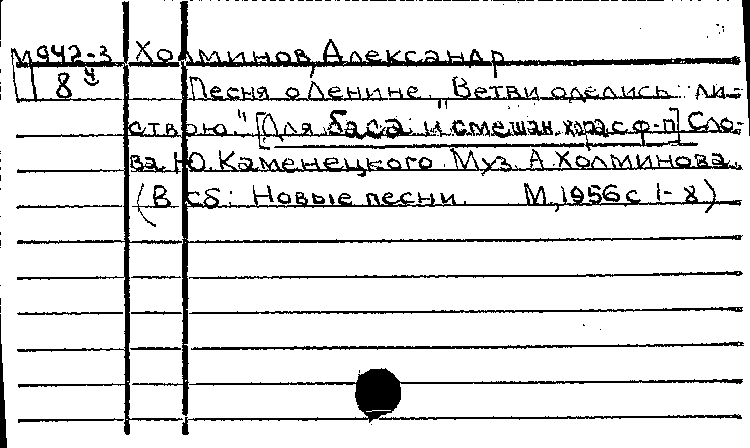 М942-3 Холминов, Александр
8ч Песня о Ленине. "Ветви оделись ли-
ствою." [Для баса и смешан. хора с ф-п] Сло-
ва Ю. Каменецкого. Муз. А. Холминова.
(В сб: Новые песни. М, 1956 с 1-8)